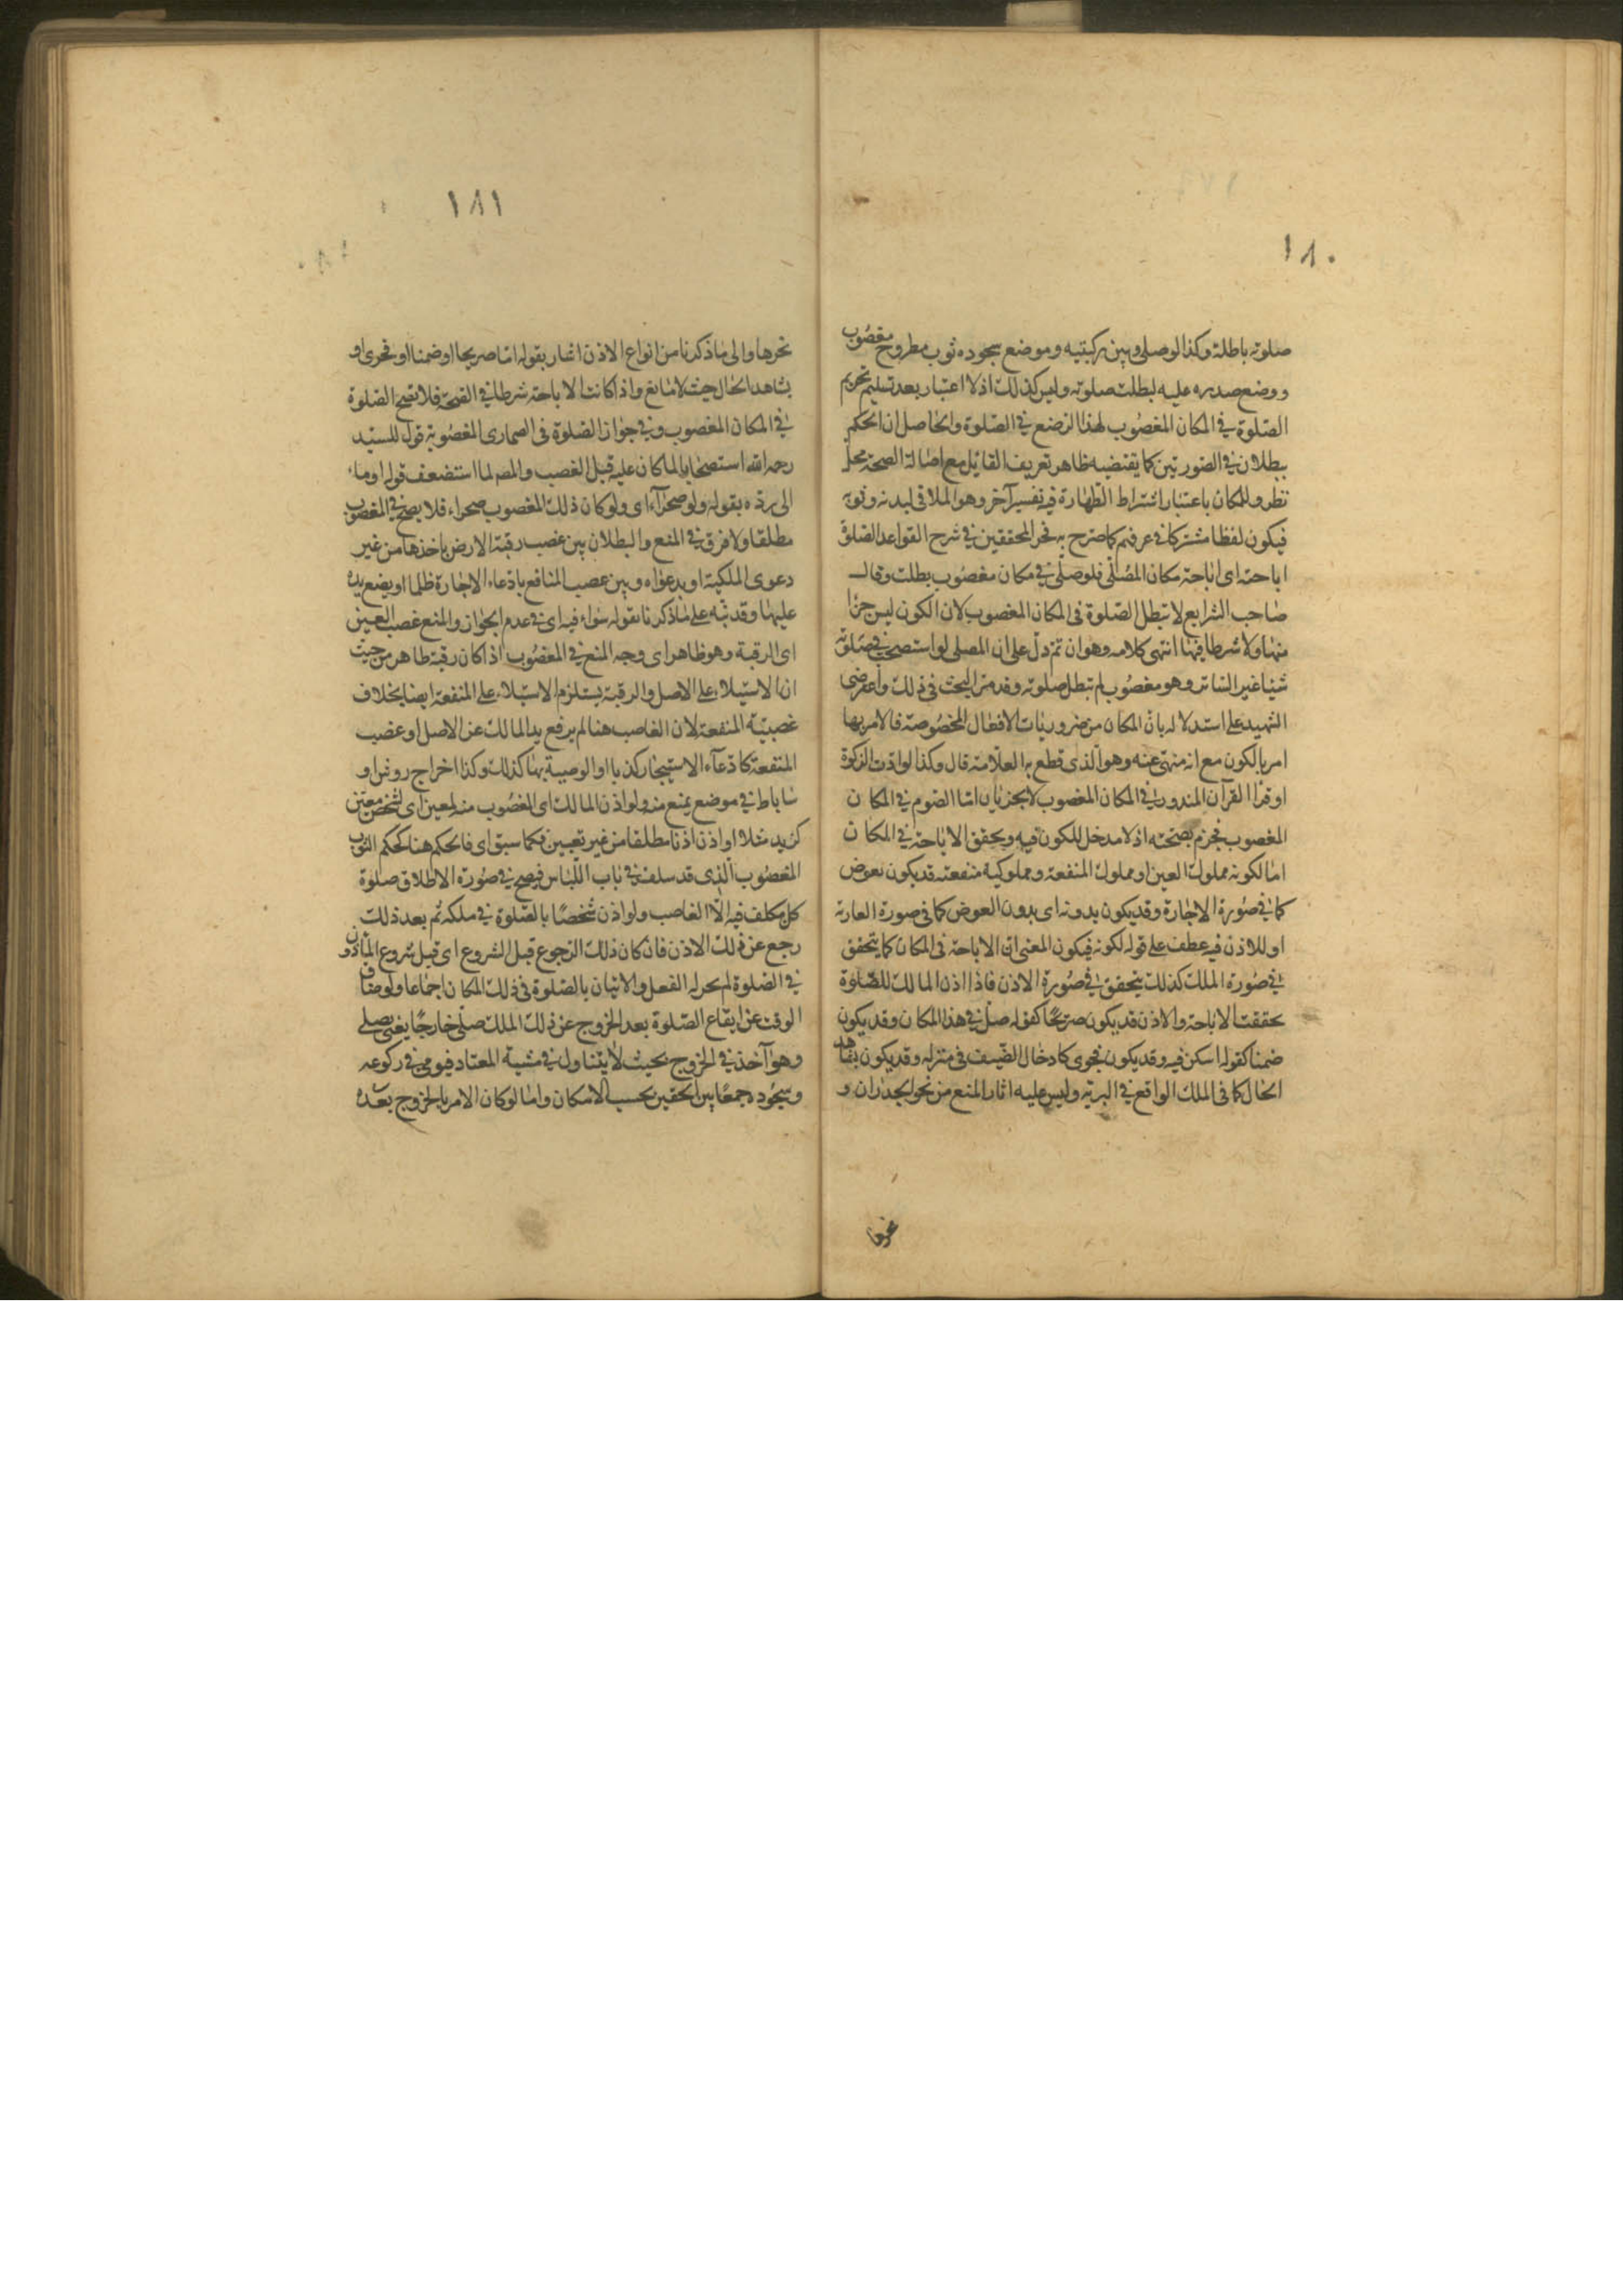 ١٨٠
صلوته باطلة وكذا لو صلى وبين ركبتيه وموضع سجوده ثوب مطروح مغصوب
ووضع صدره عليه لبطلت صلوته وليس كذلك اذ لا اعتبار بعد تسليم تحريم
الصلوة في المكان المغصوب لهذا الوضع في الصلوة والحاصل ان الحكم
ببطلان في الصورتين كما يقتضيه ظاهر تعريف القائل مع اصالة الصحة محل
نظر وللمكان باعتبار اشتراط الطهارة فيه تفسير آخر وهو الملاقى لبدنه وثوبه
فيكون لفظا مشتركا في عرفهم كما صرح به فخر المحققين في شرح القواعد الصلوة
اباحته اى اباحة مكان المصلى فلو صلى في مكان مغصوب بطلت وقال
صاحب الشرايع لا تبطل الصلوة فى المكان المغصوب لان الكون ليس جزأ
منها ولا شرطا فيها انتهى كلامه وهو ان تم دل على ان المصلى لو استصحب في صلوته
شيئا غير الساتر وهو مغصوب لم تبطل صلوته وقد مر البحث فى ذلك واعترض
الشهيد على استدلاله بان المكان من ضروريات الافعال المخصوصة فالامر بها
امر بالكون مع انه منهى عنه وهو الذى قطع به العلامة قال وكذا لو ادى الزكوة
او قرأ القرآن المنذور في المكان المغصوب لا يجزيان اما الصوم في المكان
المغصوب فجزم بصحته اذ لا مدخل للكون فيه ويحقق الاباحة في المكان
اما لكونه مملوك العين او مملوك المنفعة ومملوكية منفعته قد يكون بعوض
كما في صورة الاجارة وقد يكون بدونه اى بدون العوض كما فى صورة العارية
او للاذن فيه عطف على قوله لكونه فيكون المعنى ان الاباحة فى المكان كما يتحقق
في صورة الملك كذلك يتحقق في صورة الاذن فاذا اذن المالك للصلوة
تحققت الاباحة والاذن قد يكون صريحا كقوله صل في هذا المكان وقد يكون
ضمنا كقوله اسكن فيه وقد يكون فحوى كادخال الضيف فى منزله وقد يكون بشاهد
الحال كما فى الملك الواقع في البرية وليس عليه اثار المنع من نحو الجدران و
نحوها
١٨١
نحوها والى ما ذكرنا من انواع الاذن اشار بقوله اما صريحا او ضمنا او فحوى او
بشاهد الحال حيث لا مانع واذا كانت الاباحة شرطا في الصحة فلا تصح الصلوة
في المكان المغصوب وفي جواز الصلوة فى الصحارى المغصوبة قول للسيد
رحمه الله استصحابا لما كان عليه قبل الغصب والمص لما استضعف قوله اوماء
الى رده بقوله ولو صحراء اى ولو كان ذلك المغصوب صحراء فلا يصح في المغصوب
مطلقا ولا فرق في المنع والبطلان بين غصب رقبة الارض باخذها من غير
دعوى الملكية او بدعواه وبين غصب المنافع بادعاء الاجارة ظلما او يضع يده
عليها وقد نبه على ما ذكرنا بقوله سواء فيه اى في عدم الجواز والمنع غصب العين
اى الرقبة وهو ظاهر اى وجه المنع في المغصوب اذا كان رقبة ظاهر من حيث
ان الاستيلاء على الاصل والرقبة يستلزم الاستيلاء على المنفعة ايضا بخلاف
غصبية المنفعة لان الغاصب هنا لم يرفع يد المالك عن الاصل او غصب
المنفعة كادعاء الاستيجار كذبا او الوصية بها كذلك وكذا اخراج روشن او
ساباط في موضع يمنع منه ولو اذن المالك اى المغصوب منه لمعين اى لشخص معين
كزيد مثلا او اذن اذنا مطلقا من غير تعيين فكما سبق اى فالحكم هنا كحكم الثوب
المغصوب الذى قد سلف في باب اللباس فيصح في صورة الاطلاق صلوة
كل مكلف فيه الا الغاصب ولو اذن شخصا بالصلوة في ملكه ثم بعد ذلك
رجع عن ذلك الاذن فان كان ذلك الرجوع قبل الشروع اى قبل شروع الماذون
في الصلوة لم يجز له الفعل والاتيان بالصلوة فى ذلك المكان اجماعا ولو ضاق
الوقت عن ايقاع الصلوة بعد الخروج عن ذلك الملك صلى خارجا يعنى يصلى
وهو آخذ في الخروج بحيث لا يتناول في مشية المعتاد فيومى في ركوعه
وسجوده جمعا بين الحقين بحسب الامكان واما لو كان الامر بالخروج بعده